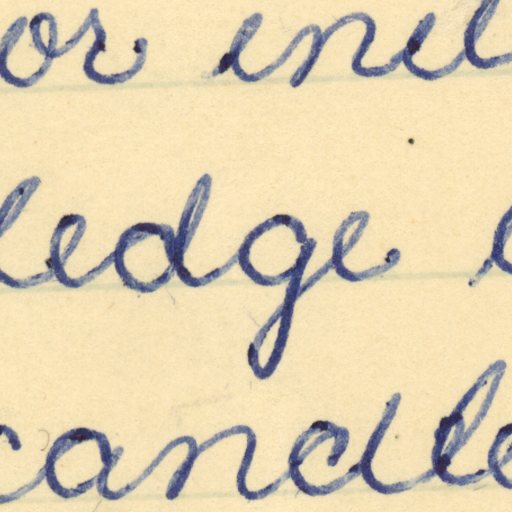 or ine
ledge
candle